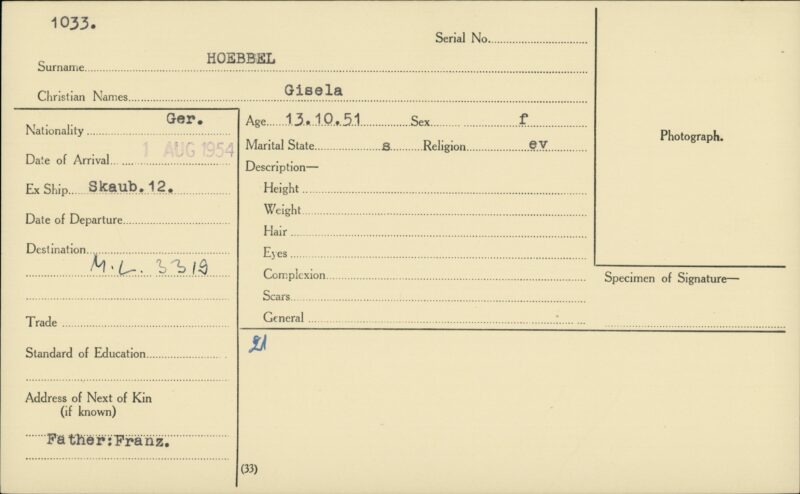 1033.
Serial No.
Surname HOEBBEL
Christian Names Gisela
Nationality Ger.
Date of Arrival 1 AUG 1954
Ex Ship Skaub.12.
Date of Departure
Destination
M.L. 3319
Trade
Standard of Education
Address of Next of Kin
(if known)
Father:Franz.
Age 13.10.51 Sex f
Marital State s Religion ev
Description—
Height
Weight
Hair
Eyes
Complexion
Scars
General
21
(33)
Photograph.
Specimen of Signature—